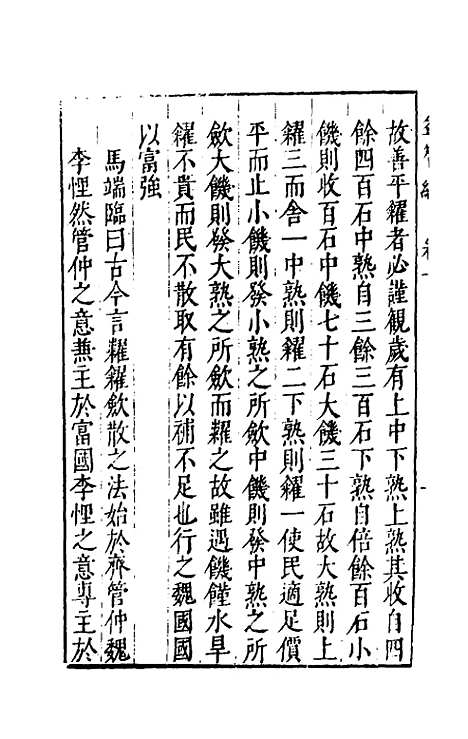 故善平糴者必謹觀歲有上中下熟上熟其收自四
餘四百石中熟自三餘三百石下熟自倍餘百石小
饑則收百石中饑七十石大饑三十石故大熟則上
糴三而舍一中熟則糴二下熟則糴一使民適足價
平而止小饑則發小熟之所歛中饑則發中熟之所
歛大饑則發大熟之所歛而糶之故雖遇饑饉水旱
糴不貴而民不散取有餘以補不足也行之魏國國
以富強
馬端臨曰古今言糶糴歛散之法始於齊管仲魏
李悝然管仲之意兼主於富國李悝之意專主於